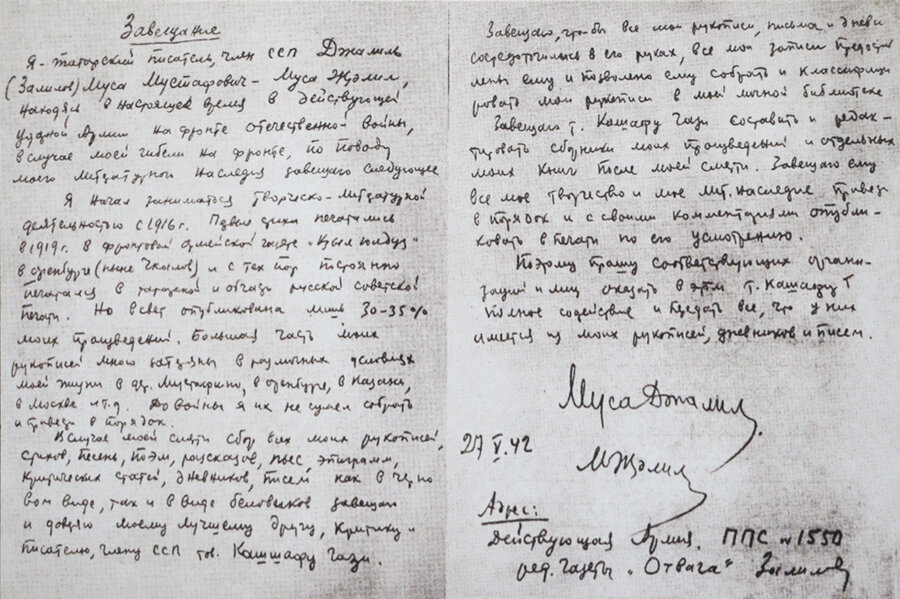 Завещание
Я - татарский писатель, член ССП Джалиль
(Залилов) Муса Мустафович - Муса Җәлил,
находясь в настоящее время в действующей
ударной Армии на фронте отечественной войны,
в случае моей гибели на фронте, по поводу
моего литературного наследия завещаю следующее
Я начал заниматься творческо-литературной
деятельностью с 1916 г. Первые стихи печатались
в 1919 г. в фронтовой армейской газете „Кзыл юлдуз"
в Оренбурге (ныне Чкалов) и с тех пор постоянно
печатался в татарской и отчасти русской советской
печати. Но в свет опубликована лишь 30-35%
моих произведений. Большая часть моих
рукописей мною затеряны в различных условиях
моей жизни в др. Мустафино, в Оренбурге, в Казани,
в Москве и т.д. До войны я их не сумел собрать
и привести в порядок.
В случае моей смерти сбор всех моих рукописей,
стихов, песень, поэм, рассказов, пьес, эпиграмм,
критических статей, дневников, писем как в черно
вом виде, так и в виде беловиков завещаю
и доверяю моему лучшему другу, критику и
писателю, члену ССП тов. Кашшафу Гази.
Завещаю, чтобы все мои рукописи, письма и дневн
сосредоточились в его руках, все мои записи предостав
лены ему и позволено ему собрать и классифици
ровать мои рукописи в моей личной библиотеке
Завещаю т. Кашафу Гази составить и редак-
тировать сборники моих произведений и отдельных
моих книг после моей смерти. Завещаю ему
все мое творчество и мое лит. наследие привез
в порядок и с своими комментариями опубли-
ковать в печати по его усмотрению.
Поэтому прошу соответствующих органи-
заций и лиц оказать в этом т. Кашафу Г
полное содействие и предать все, что у них
имеется из моих рукописей, дневников и писем.
Муса Джалиль
27 V. 42
М Җәлил
Адрес:
Действующая Армия. ППС № 1550
ред. газеты „Отвага" Залилов